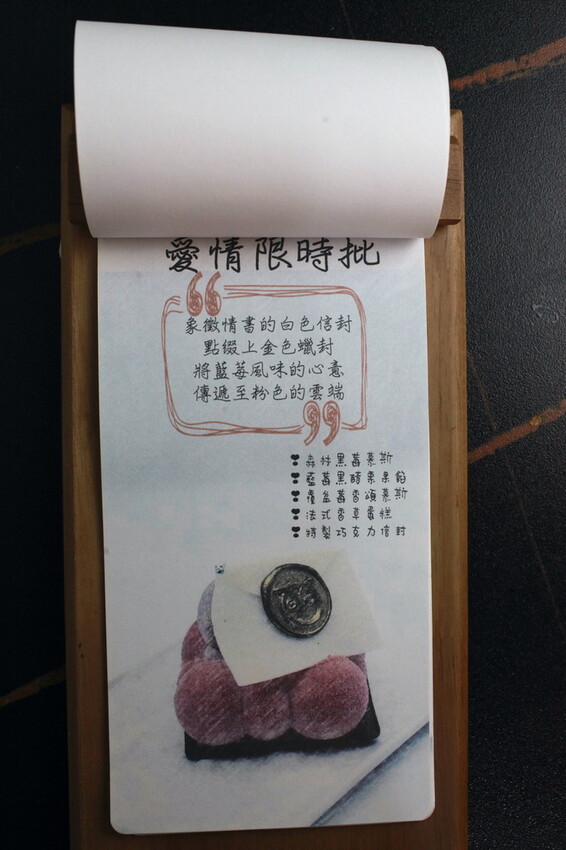 愛情限時批
象徵情書的白色信封
點綴上金色蠟封
將藍莓風味的心意
傳遞至粉色的雲端
森林黑莓慕斯
藍莓黑醋栗果餡
覆盆莓香頌慕斯
法式香草蛋糕
特製巧克力信封